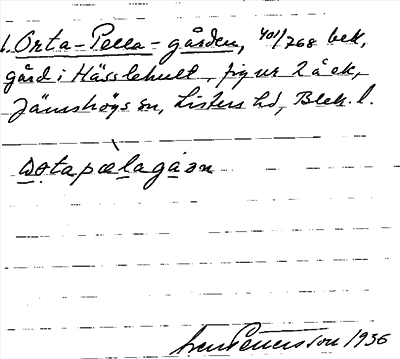 1. Orta-Pella-gården, 401/768 bek,
gård i Hässlehult, fig nr 2 å ek,
Jämshögs sn, Listers hd, Blek. l.
Pettersson 1936